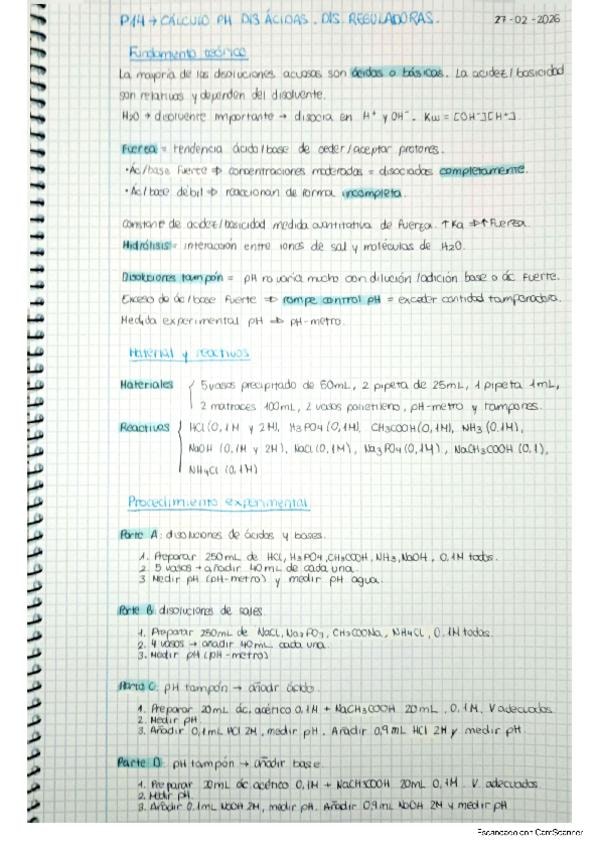 P14 → CÁLCULO PH DIS ÁCIDAS. DIS. REGULADORAS. 27-02-2026
Fundamento teórico
La mayoría de las disoluciones acuosas son ácidas o básicas. La acidez/basicidad
son relativas y dependen del disolvente.
H₂O → disolvente importante → disocia en H⁺ y OH⁻. Kw = [OH⁻][H⁺].
Fuerza = tendencia ácido/base de ceder/aceptar protones.
• Ác/base fuerte ⇒ concentraciones moderadas = disociadas completamente.
• Ác/base débil ⇒ reaccionan de forma incompleta.
Constante de acidez/basicidad medida cuantitativa de fuerza. ↑Ka ⇒ ↑Fuerza.
Hidrólisis = interacción entre iones de sal y moléculas de H₂O.
Disoluciones tampón = pH no varía mucho con dilución/adición base o ác fuerte.
Exceso de ác/base fuerte ⇒ rompe control pH = exceder cantidad tamponadora.
Medida experimental pH ⇒ pH-metro.
Material y reactivos
Materiales { 5 vasos precipitado de 50mL, 2 pipeta de 25mL, 1 pipeta 1mL,
2 matraces 100mL, 2 vasos polietileno, pH-metro y tampones.
Reactivos { HCl (0,1M y 2M), H₃PO₄ (0,1M), CH₃COOH (0,1M), NH₃ (0,1M),
NaOH (0,1M y 2M), NaCl (0,1M), Na₃PO₄ (0,1M), NaCH₃COOH (0,1),
NH₄Cl (0,1M)
Procedimiento experimental
Parte A: disoluciones de ácidos y bases.
1. Preparar 250mL de HCl, H₃PO₄, CH₃COOH, NH₃, NaOH, 0,1M todos.
2. 5 vasos → añadir 40mL de cada una.
3 Medir pH (pH-metro) y medir pH agua.
Parte B: disoluciones de sales.
1. Preparar 250mL de NaCl, Na₃PO₄, CH₃COONa, NH₄Cl, 0.1M todos.
2. 4 vasos → añadir 40mL cada una.
3. Medir pH (pH-metro)
Parte C: pH tampón → añadir ácido.
1. Preparar 20mL ác. acético 0,1M + NaCH₃COOH 20mL, 0,1M, V adecuados.
2. Medir pH.
3. Añadir 0,1mL HCl 2M, medir pH. Añadir 0,9mL HCl 2M y medir pH.
Parte D: pH tampón → añadir base.
1. Preparar 20mL ác acético 0,1M + NaCH₃COOH 20mL 0,1M. V. adecuados.
2. Medir pH.
3. Añadir 0.1mL NaOH 2M, medir pH. Añadir 0,9mL NaOH 2M y medir pH
Escaneado con CamScanner